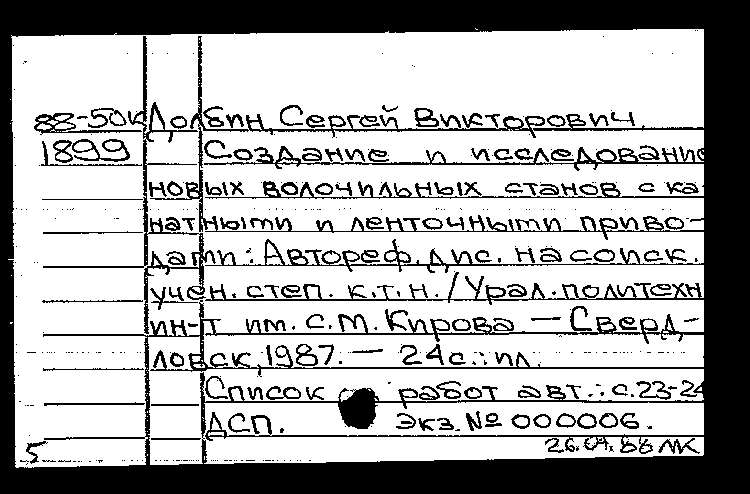 88-50к Долбин, Сергей Викторович.
1899 Создание и исследование
новых волочильных станов с ка-
натными и ленточными приво-
дами: Автореф. дис. на соиск.
учен. степ. к.т.н. / Урал. политехн
ин-т им. С.М. Кирова. — Сверд-
ловск, 1987. — 24 с.: ил.
Список работ авт.: с. 23-24
ДСП. Экз. № 000006.
5 26.04.88 МК